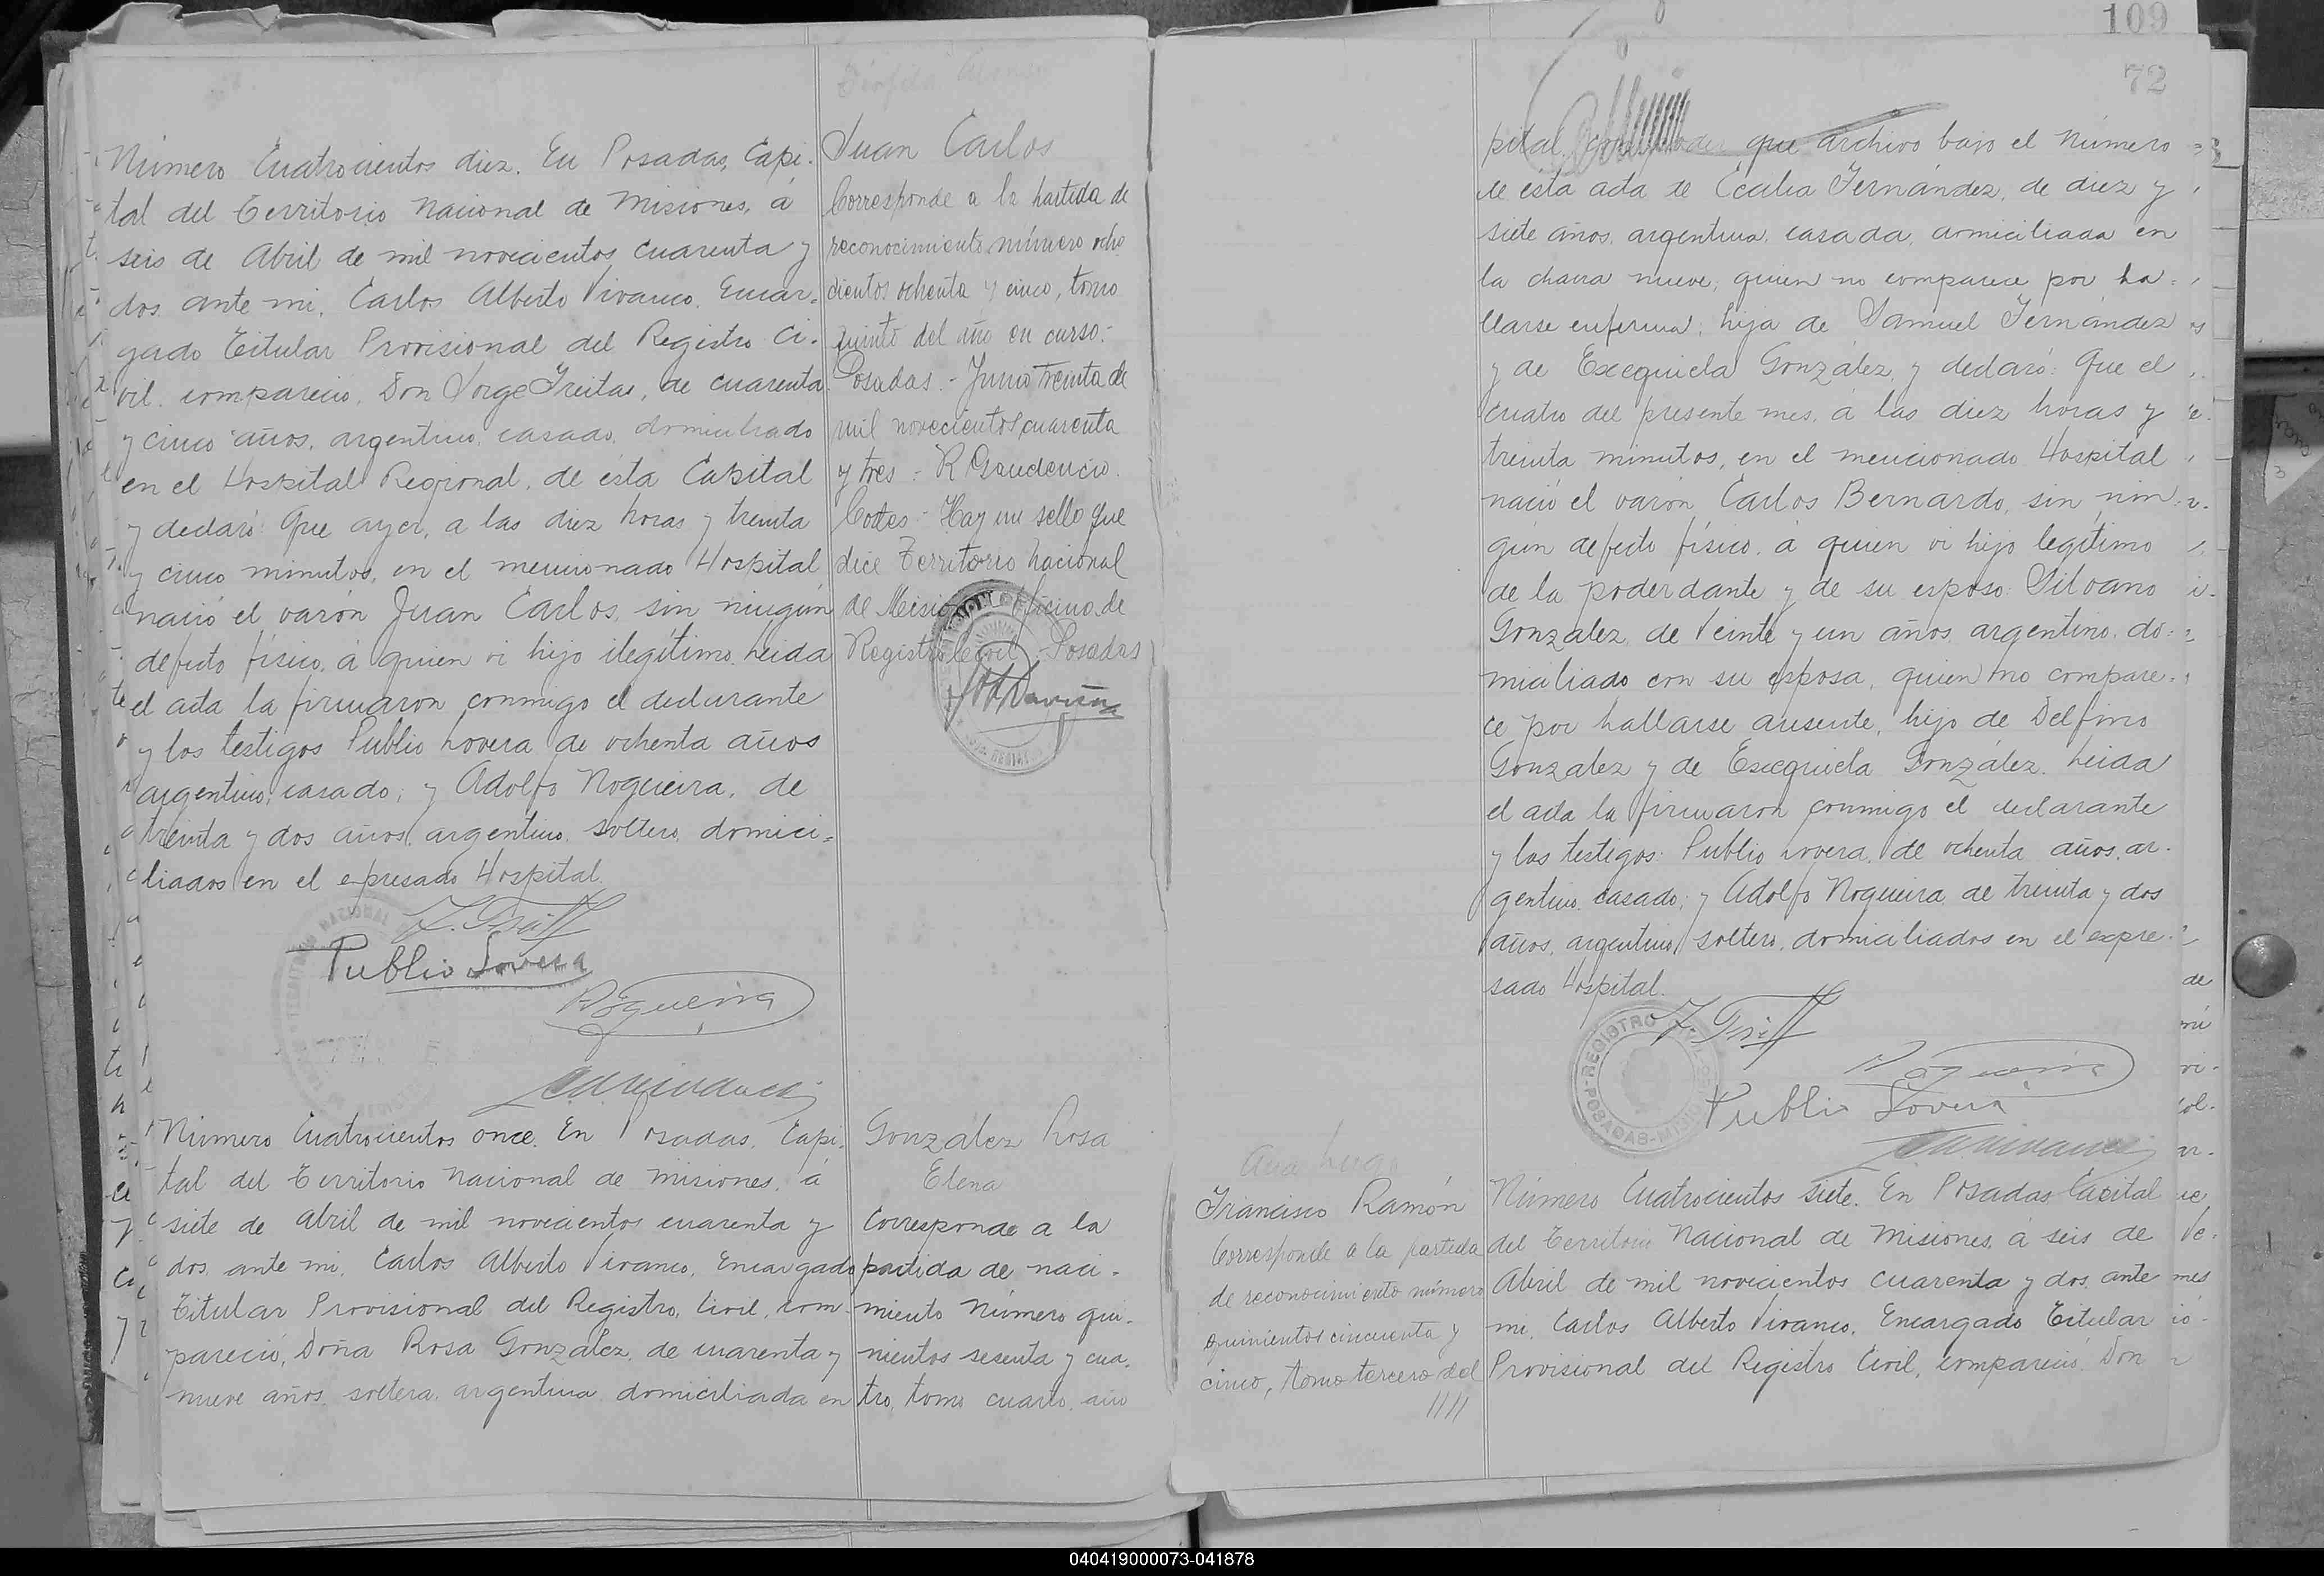 Número Cuatrocientos diez. En Posadas, Capi-
tal del Territorio Nacional de Misiones, á
seis de Abril de mil novecientos cuarenta y
dos, ante mi, Carlos Alberto Vivanco, Encar-
gado Titular Provisional del Registro Ci-
vil, compareció, Don Jorge Freitas, de cuarenta
y cinco años, argentino, casado, domiciliado
en el Hospital Regional, de ésta Capital
y declaró: Que ayer, a las diez horas y treinta
y cinco minutos, en el mencionado Hospital
nació el varón Juan Carlos, sin ningún
defecto físico, á quien vi hijo ilegítimo. Leida
el acta la firmaron conmigo el declarante
y los testigos Publio Lovera de ochenta años
argentino, casado; y Adolfo Nogueira, de
treinta y dos años, argentino, soltero, domici=
liados en el expresado Hospital.
Publio Lovera
Nogueira
Juan Carlos
Corresponde a la partida de
reconocimiento número ocho
cientos ochenta y cinco, tomo
quinto del año en curso.-
Posadas.- Junio treinta de
mil novecientos cuarenta
y tres.- R Gaudencio
Cortes.- Hay un sello que
dice Territorio Nacional
de Misiones Oficina de
Registro Civil - Posadas
Número Cuatrocientos once. En Posadas, Capi-
tal del Territorio Nacional de Misiones, á
siete de Abril de mil novecientos cuarenta y
dos, ante mi, Carlos Alberto Vivanco, Encargado
Titular Provisional del Registro Civil, com-
pareció, Doña Rosa González, de cuarenta y
nueve años, soltera, argentina, domiciliada en
González Rosa
Elena
Corresponde a la
partida de naci-
miento Número qui-
nientos sesenta y cua-
tro, tomo cuarto, año
109
72
pital, que archivo bajo el Número
de ésta acta de Cecilia Fernández, de diez y
siete años, argentina, casada, domiciliada en
la chacra nueve; quien no comparece por ha=
llarse enferma; hija de Samuel Fernández
y de Exequiela González, y declaró: Que el
cuatro del presente mes, á las diez horas y
treinta minutos, en el mencionado Hospital
nació el varón Carlos Bernardo, sin nin=
gún defecto físico, á quien vi hijo legítimo
de la poderdante y de su esposo: Silvano
González, de veinte y un años, argentino, do=
miciliado con su esposa, quien no compare=
ce por hallarse ausente, hijo de Delfino
González y de Exequiela González. Leida
el acta la firmaron conmigo el declarante
y los testigos: Publio Lovera, de ochenta años, ar-
gentino, casado; y Adolfo Nogueira, de treinta y dos
años, argentino, soltero, domiciliados en el expre-
sado Hospital.
REGISTRO CIVIL POSADAS-MISIONES
Nogueira
Publio Lovera
Ana Lugo
Francisco Ramón
Corresponde a la partida
de reconocimiento número
quinientos cincuenta y
cinco, tomo tercero del
////
Número Cuatrocientos siete. En Posadas Capital
del Territorio Nacional de Misiones, á seis de
Abril de mil novecientos cuarenta y dos, ante
mi, Carlos Alberto Vivanco, Encargado Titular
Provisional del Registro Civil, compareció, Don
040419000073-041878